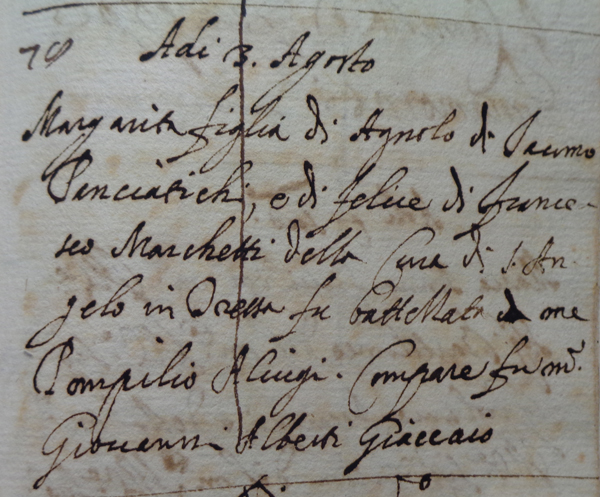 78 Adi 3. Agosto
Margarita figlia di Agnolo di Jacomo
Panciatichi, e di felice di france-
sco Marchetti della Cura di S. An-
gelo in Dressa fu battezzata da me
Pompilio Aluigi. Compare fu m.
Giovanni Alberti Giaccaio